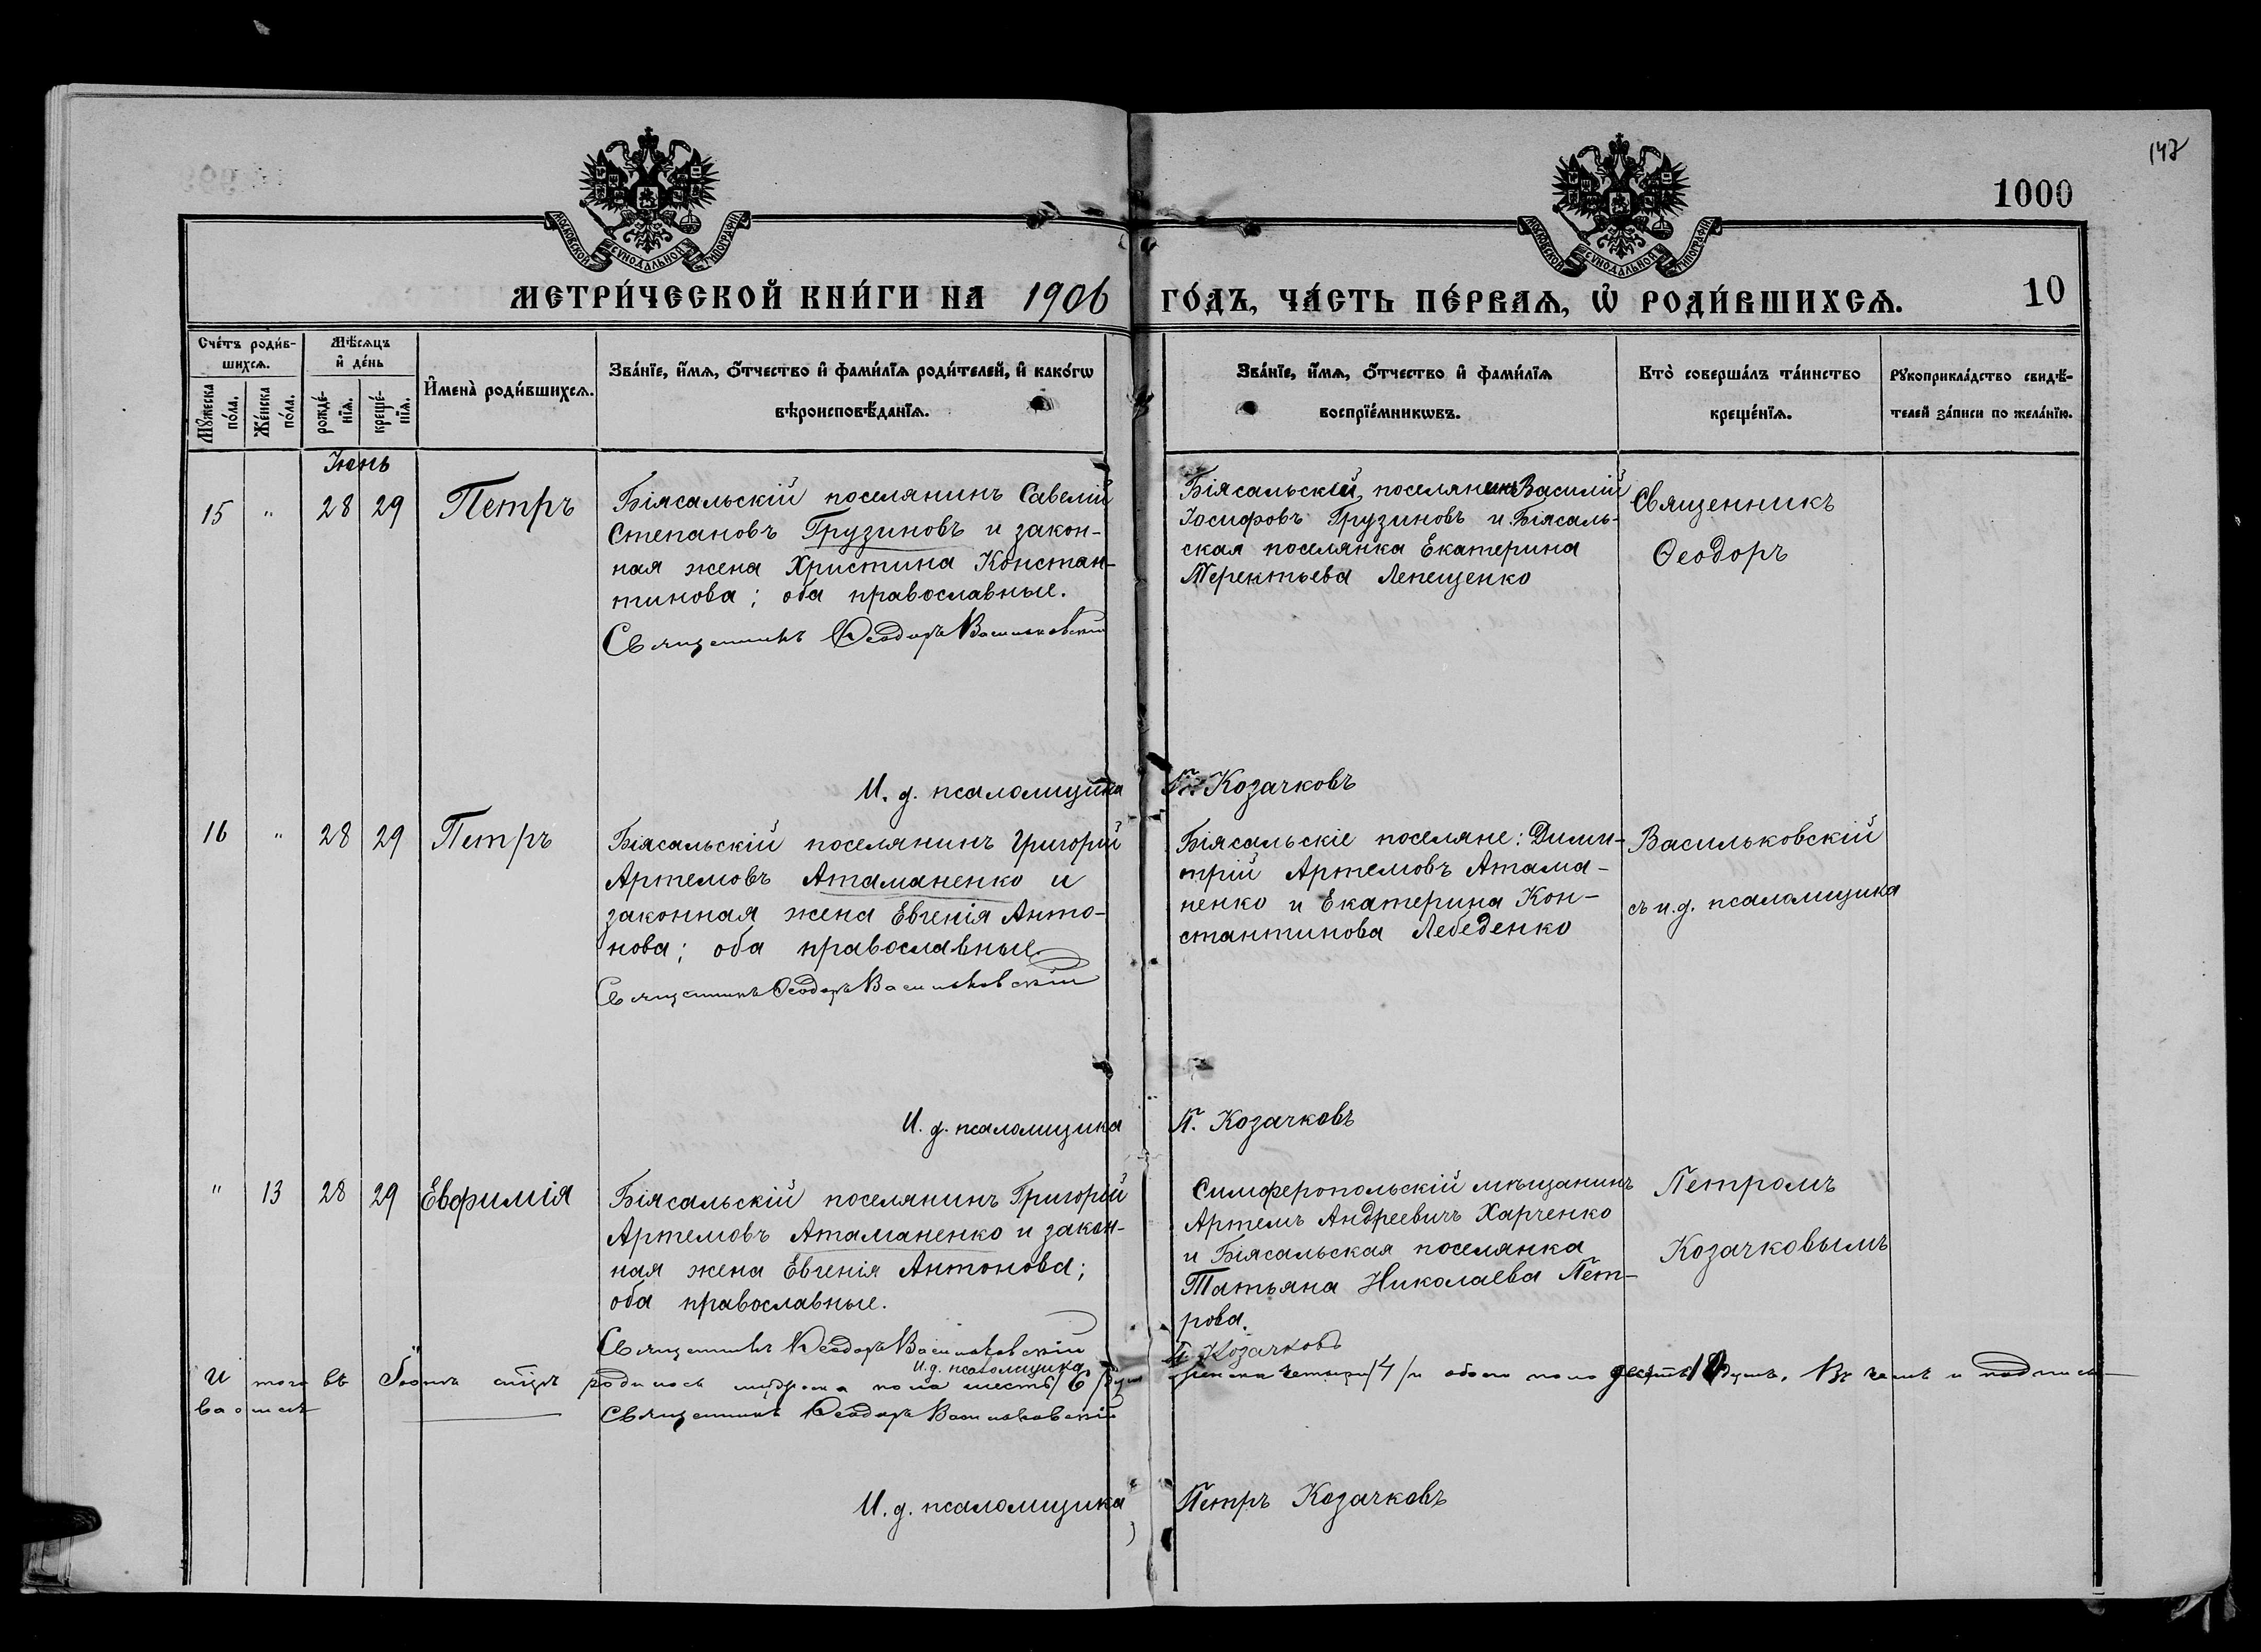 147
1000
МОСКОВСКОЙ СѴНОДАЛЬНОЙ ТИПОГРАФІИ
МОСКОВСКОЙ СѴНОДАЛЬНОЙ ТИПОГРАФІИ
МЕТРИ́ЧЕСКОЙ КНИ́ГИ НА 1906 ГО́ДЪ, ЧА́СТЬ ПЕ́РВАѦ, Ѡ҆ РОДИ́ВШИХСѦ.
10
Сче́тъ роди́в-
шихсѧ.
Мꙋ́жеска
по́ла.
Же́нска
по́ла.
Мѣ́сѧцъ
и҆ де́нь
рожде́-
нїѧ.
креще́-
нїѧ.
И҆мена̀ роди́вшихсѧ.
Зва́нїе, и҆́мѧ, ѻ҆́тчество и҆ фами́лїѧ роди́телей, и҆ како́гѡ
вѣроисповѣ́данїѧ.
Зва́нїе, и҆́мѧ, ѻ҆́тчество и҆ фами́лїѧ
воспрїе́мникѡвъ.
Кто̀ соверша́лъ та́инство
креще́нїѧ.
Рꙋкоприкла́дство свидѣ́-
телей за́писи по жела́нїю.
Іюнь
15 " 28 29 Петръ
Біясальскій поселянинъ Савелій
Степановъ Грузиновъ и закон-
ная жена Христина Констан-
тинова; оба православные.
Священникъ Ѳеодоръ Васильковскій
Біясальскій поселянинъ Василій
Іосифовъ Грузиновъ и Біясаль-
ская поселянка Екатерина
Терентьева Лепещенко
Священникъ
Ѳеодоръ
И. д. псаломщика П. Козачковъ
16 " 28 29 Петръ
Біясальскій поселянинъ Григорій
Артемовъ Атаманенко и
законная жена Евгенія Анто-
нова; оба православные.
Священникъ Ѳеодоръ Васильковскій
Біясальскіе поселяне: Дими-
трій Артемовъ Атама-
ненко и Екатерина Кон-
стантинова Лебеденко
Васильковскій
съ и.д. псаломщика
И. д. псаломщика П. Козачковъ
" 13 28 29 Евфимія
Біясальскій поселянинъ Григорій
Артемовъ Атаманенко и закон-
ная жена Евгенія Антонова;
оба православные.
Священникъ Ѳеодоръ Васильковскій
И.д. псаломщика П. Козачковъ
Симферопольскій мѣщанинъ
Артемъ Андреевичъ Харченко
и Біясальская поселянка
Татьяна Николаева Пет-
рова.
Петромъ
Козачковымъ
И того въ Іюнѣ родилось мужеска пола шесть /6/ женска четыри /4/ и обоего пола 10 душъ. Въ чемъ и подписы-
ваемся
Священникъ Ѳеодоръ Васильковскій
И. д. псаломщика Петръ Козачковъ